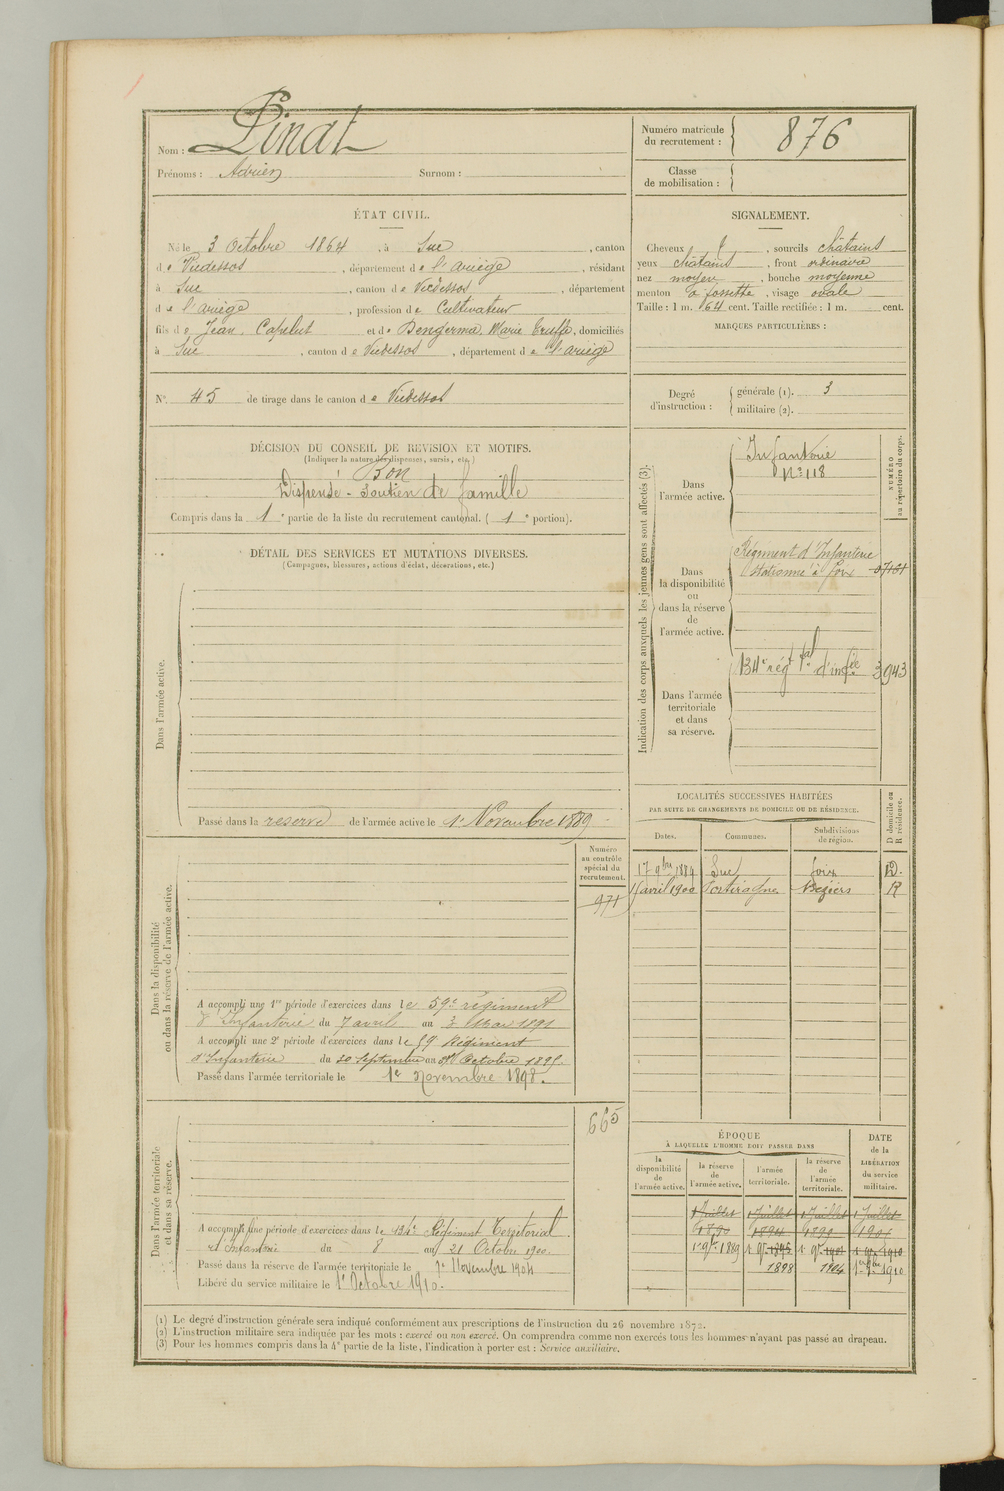 Nom : Pinat
Prénoms : Adrien Surnom :
Numéro matricule du recrutement : 876
Classe de mobilisation :
ÉTAT CIVIL.
Né le 3 Octobre 1864, à Suc, canton
de Vicdessos, département de l'ariège, résidant
à Suc, canton de Vicdessos, département
de l'ariège, profession de Cultivateur
fils de Jean Capelut et de Bengerma, Marie Truffe, domiciliés
à Suc, canton de Vicdessos, département de l'ariège
N° 45 de tirage dans le canton de Vicdessos
SIGNALEMENT.
Cheveux, sourcils châtains
yeux châtains, front ordinaire
nez moyen, bouche moyenne
menton à fossette, visage ovale
Taille : 1 m. 64 cent. Taille rectifiée : 1 m. cent.
MARQUES PARTICULIÈRES :
Degré d'instruction : générale (1). 3
militaire (2).
DÉCISION DU CONSEIL DE REVISION ET MOTIFS.
(Indiquer la nature des dispenses, sursis, etc.)
Bon
Dispensé - Soutien de famille
Compris dans la 1e partie de la liste du recrutement cantonal. ( 1e portion).
DÉTAIL DES SERVICES ET MUTATIONS DIVERSES.
(Campagnes, blessures, actions d'éclat, décorations, etc.)
Dans l'armée active.
Passé dans la réserve de l'armée active le 1er Novembre 1889
Indication des corps auxquels les jeunes gens sont affectés (3).
NUMÉRO au répertoire du corps.
Dans l'armée active.
Infanterie
N° 118
Dans la disponibilité ou dans la réserve de l'armée active.
Régiment d'Infanterie
stationné à Foix
Dans l'armée territoriale et dans sa réserve.
134e rég t al d'inf ie 3943
LOCALITÉS SUCCESSIVES HABITÉES
PAR SUITE DE CHANGEMENTS DE DOMICILE OU DE RÉSIDENCE.
D domicile ou R résidence.
Dates. Communes. Subdivisions de région.
17 9bre 1889 Suc Foix D.
1 avril 1900 Portiragnes Béziers R
Dans la disponibilité ou dans la réserve de l'armée active.
Numéro au contrôle spécial du recrutement.
971
A accompli une 1re période d'exercices dans le 59e régiment
d'Infanterie du 7 avril au 4 Mai 1891
A accompli une 2e période d'exercices dans le 59 Régiment
d'Infanterie du 30 Septembre au Octobre 1895.
Passé dans l'armée territoriale le 1er Novembre 1898.
Dans l'armée territoriale et dans sa réserve.
665
A accompli une période d'exercices dans le 134e Régiment Territorial
d'Infanterie du 8 au 21 Octobre 1900.
Passé dans la réserve de l'armée territoriale le 1er Novembre 1904
Libéré du service militaire le 1er Octobre 1910.
ÉPOQUE
À LAQUELLE L'HOMME DOIT PASSER DANS
DATE de la LIBÉRATION du service militaire.
la disponibilité de l'armée active.
la réserve de l'armée active.
l'armée territoriale.
la réserve de l'armée territoriale.
1 Juillet 1 Juillet 1 Juillet 1 Juillet
1890
1er 9bre 1889
1898 1904 1910
(1) Le degré d'instruction générale sera indiqué conformément aux prescriptions de l'instruction du 26 novembre 1872.
(2) L'instruction militaire sera indiquée par les mots : exercé ou non exercé. On comprendra comme non exercés tous les hommes n'ayant pas passé au drapeau.
(3) Pour les hommes compris dans la 4e partie de la liste, l'indication à porter est : Service auxiliaire.